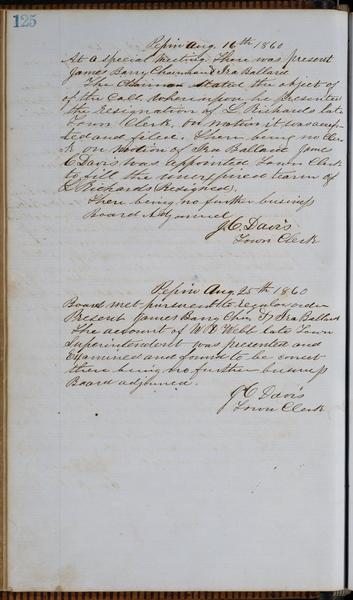 125
Pepin Aug. 16th 1860
At a special meeting. There was present
James Barry Chairman & Ira Ballard
The Chairman stated the object of
of the Call whereupon he presented
the resignation of L Richards late
Town Clerk. On motion it was accep
ted and filed. There being no Cler
k on motion of Ira Ballard James
C Davis was appointed Town Clerk
to fill the unexpired term of
L Richards (Resigned).
There being no further business
Board Adjourned
J.C. Davis
Town Clerk
Pepin Aug. 25th 1860
Board met pursuant to regular order
Present James Barry Chn. & Ira Ballard
The account of W Webb late Town
Superintendent was presented and
Examined and found to be correct
there being no further business
Board adjourned.
J C Davis
Town Clerk